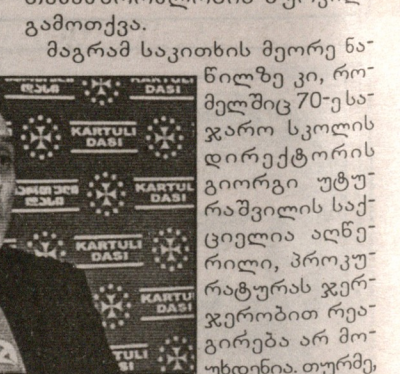 გამოთქვა.
მაგრამ საკითხის მეორე ნა-
წილზე კი, რო-
მელშიც 70-ე სა-
ჯარო სკოლის
დირექტორის
გიორგი უტუ-
რაშვილის საქ-
ციელია აღწე-
რილი, პროკუ-
რატურას ჯერ-
ჯერობით რეა-
გირება არ მო-
უხდინია. თურმე,
KARTULI
DASI
KARTULI
DASI
KARTULI
DASI
KARTULI
DASI